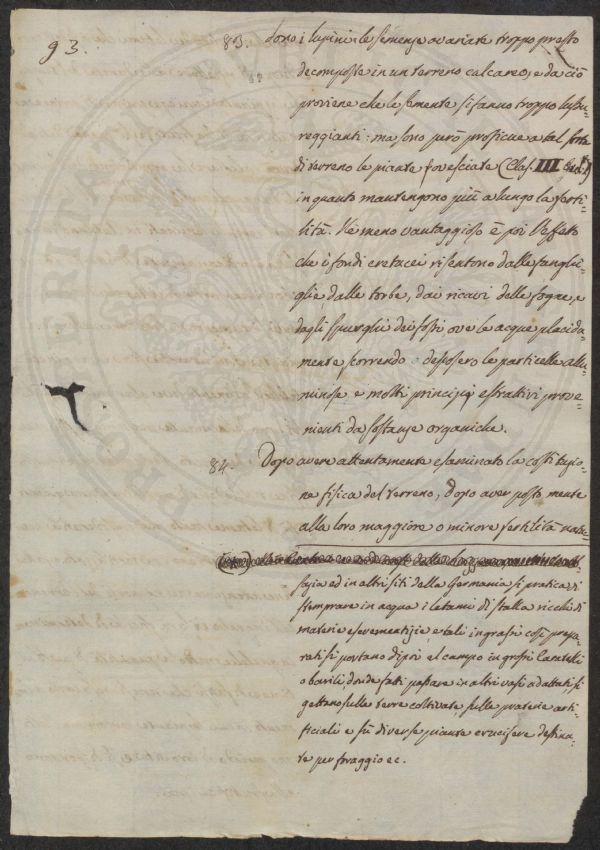 93.
83. sono i lupini e le semenze avariate troppo presto
decomposte in un terreno calcareo, e da ciò
proviene che le semente si fanno troppo lussu-
reggianti: ma sono però proficue a tal sorte
di terreno le piante fovesciate (Clas. III
in quanto mantengono più a lungo la ferti-
lità. Nè meno vantaggioso è poi l'effetto
che i fondi cretacei risentono dalle fanghi-
glie, dalle torbe, dai ricavi delle fogne, e
dagli spurghi dei fossi ove le acque placida-
mente scorrendo deposero le particelle allu-
minose e molti principj estrattivi prove-
nienti da sostanze organiche.
84. Dopo avere attentamente esaminato la costituzio-
ne fisica del terreno, dopo aver posto mente
alla loro maggiore o minore fertilità natu-
ed in altri siti della Germania si pratica di
stemprare in acqua i letami di stalla ricchi di
materie escrementizie, e tali ingrassi così prepa-
rati si portano di poi el campo in grossi Caratelli
o barili, donde fatti passare in altri vasi adattati, si
gettano sulle terre coltivate, sulle praterie arti-
ficiali e sù diverse piante crucifere destina-
te per foraggio ec.